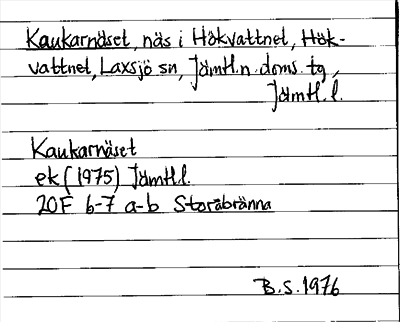 Kaukarnäset, näs i Hökvattnet, Hök-
vattnet, Laxsjö sn, Jämtl.n.doms.tg,
Jämtl.l.
Kaukarnäset
ek (1975) Jämtl.l.
20F 6-7 a-b Storåbränna
B.S. 1976